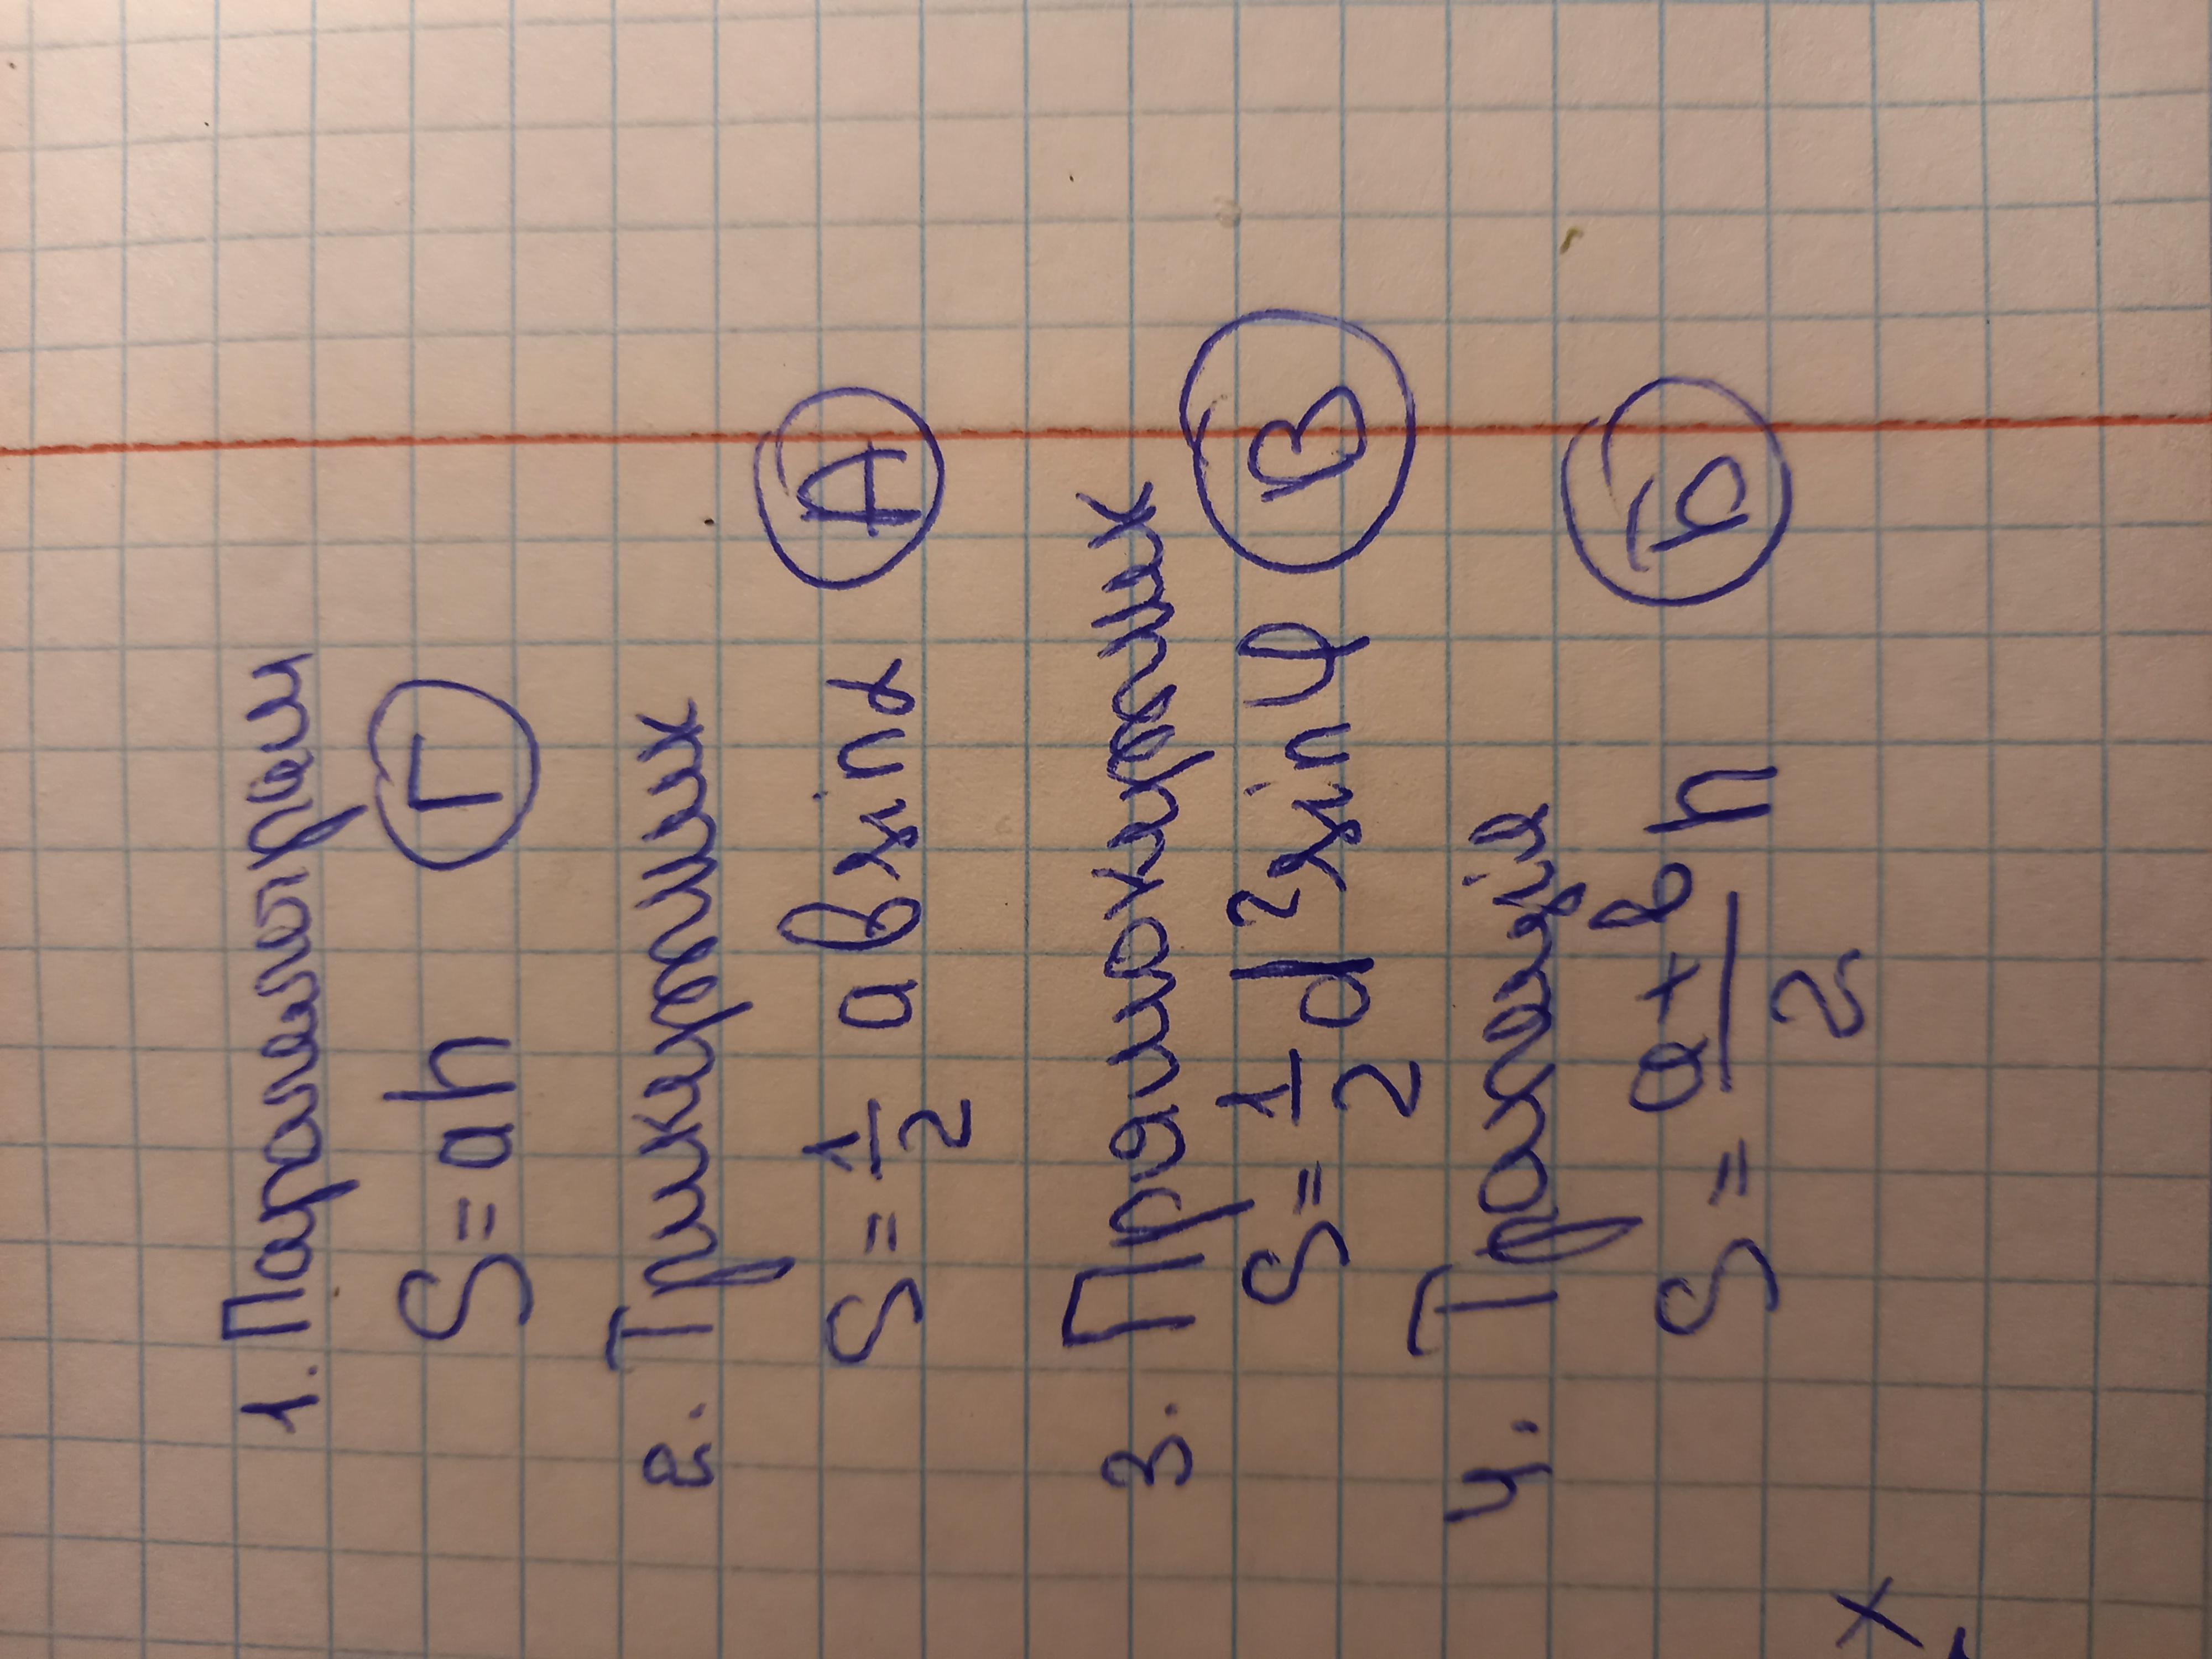 1. Паралелограм
S=ah Г
2. Трикутник
S=1/2 aвsinα А
3. Прямокутник
S=1/2 d²sinφ В
4. Трапеція
S=a+в/2 h Б
x